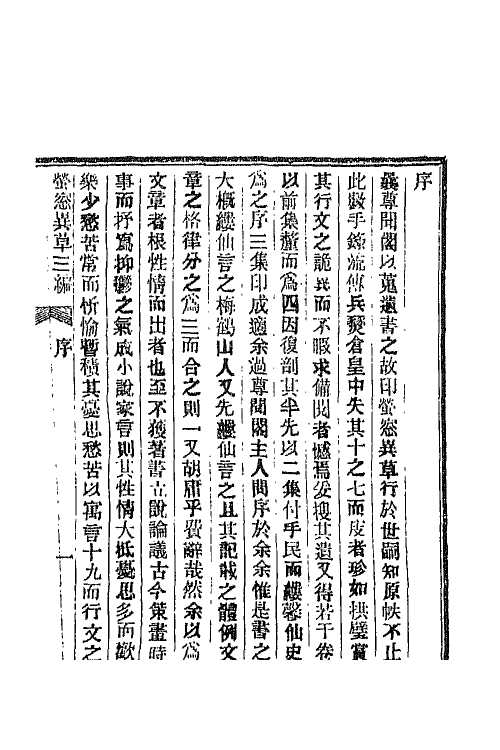 序
曩尊聞閣以蒐遺書之故印螢窗異草行於世嗣知原帙不止
此數手錄流傳兵燹倉皇中失其十之七而庋者珍如拱璧賞
其行文之詭異而不暇求備閱者憾焉爰搜其遺又得若干卷
以前集釐而爲四因復剖其半先以二集付手民而縷馨仙史
爲之序三集印成適余過尊聞閣主人問序於余余惟是書之
大概縷仙言之梅鶴山人又先縷仙言之且其記載之體例文
章之格律分之爲三而合之則一又胡庸乎費辭哉然余以爲
文章者根性情而出者也至不獲著書立說論議古今策畫時
事而抒寫抑鬱之氣成小說家言則其性情大抵憂思多而歡
樂少愁苦常而忻愉暫積其憂思愁苦以寓言十九而行文之
螢窗異草三編 序 一